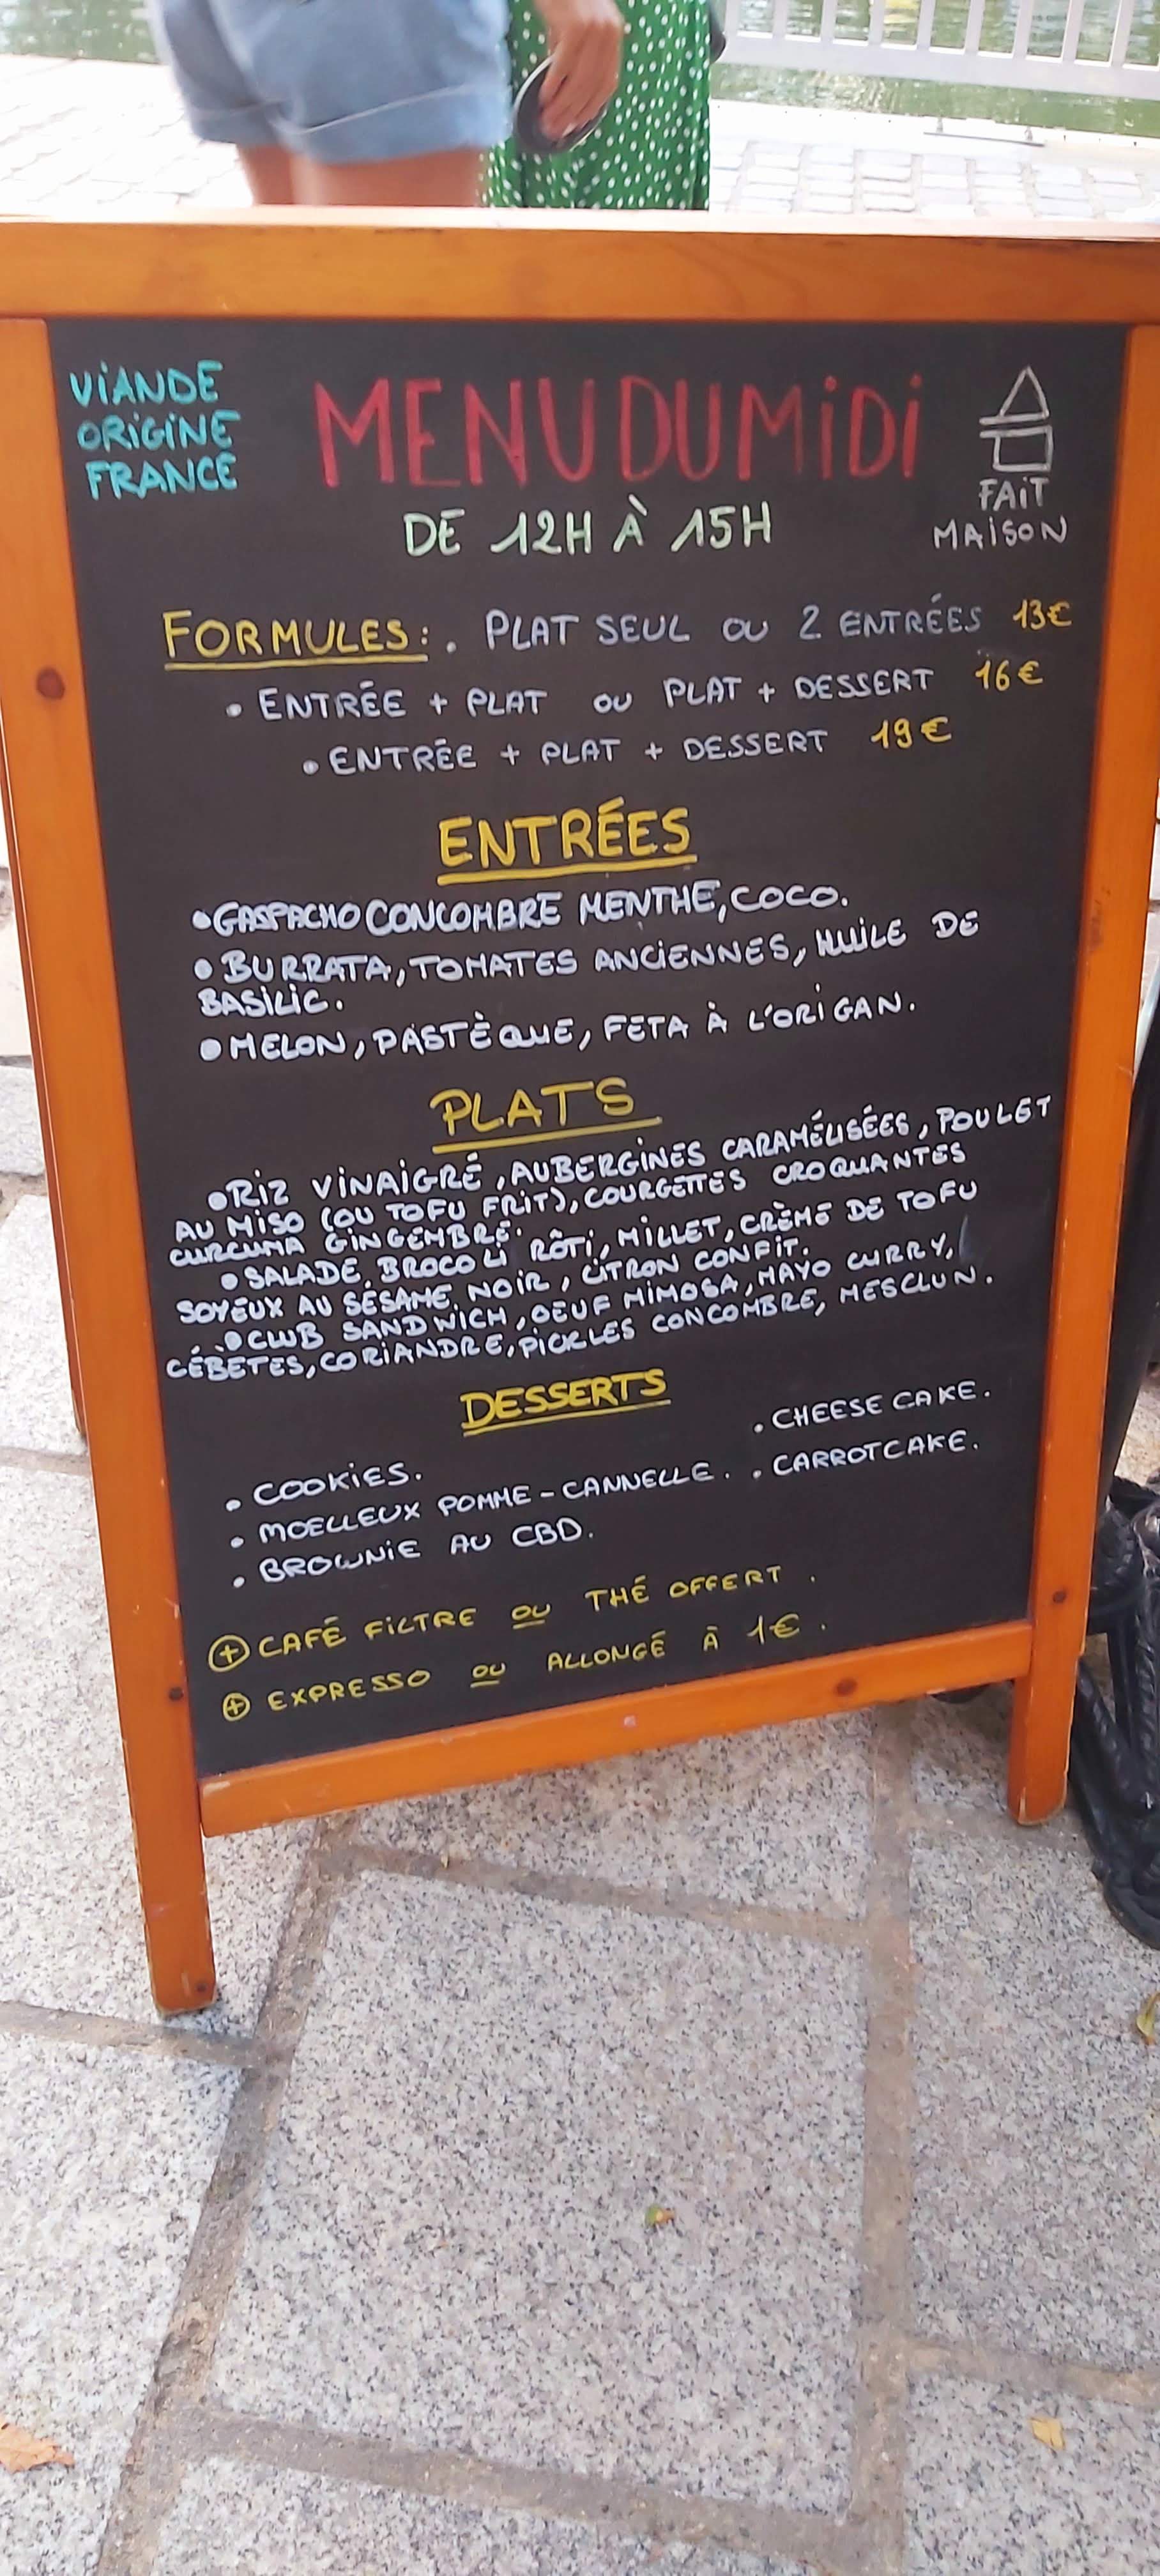 VIANDE
ORIGINE
FRANCE
MENU DU MIDI
DE 12H À 15H
FAIT
MAISON
FORMULES: . PLAT SEUL OU 2 ENTRÉES 13€
• ENTRÉE + PLAT OU PLAT + DESSERT 16€
• ENTRÉE + PLAT + DESSERT 19€
ENTRÉES
• GASPACHO CONCOMBRE MENTHE, COCO.
• BURRATA, TOMATES ANCIENNES, HUILE DE
BASILIC.
• MELON, PASTÈQUE, FETA À L'ORIGAN.
PLATS
• RIZ VINAIGRÉ, AUBERGINES CARAMÉLISÉES, POULET
AU MISO (OU TOFU FRIT), COURGETTES CROQUANTES
CURCUMA GINGEMBRE.
• SALADE, BROCOLI RÔTI, MILLET, CRÈME DE TOFU
SOYEUX AU SÉSAME NOIR, CITRON CONFIT.
• CLUB SANDWICH, OEUF MIMOSA, MAYO CURRY,
CÉBETES, CORIANDRE, PICKLES CONCOMBRE, MESCLUN.
DESSERTS
. COOKIES.
. MOELLEUX POMME-CANNELLE.
. BROWNIE AU CBD.
. CHEESE CAKE.
. CARROTCAKE.
+ CAFÉ FILTRE OU THÉ OFFERT.
+ EXPRESSO OU ALLONGÉ À 1€.